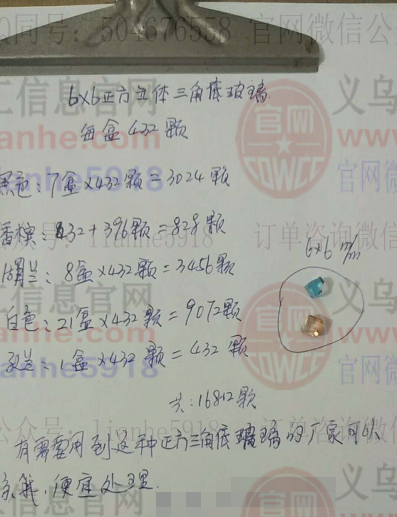 同号: 504676558 官网微信公
6×6正方立体三角底玻璃
工信息官网
义乌
每盒432颗
官网
lianhe5918
黑色: 7盒×432颗=3024颗
香槟: 432+396颗=828颗
订单咨询微信
6×6 m/m
湖兰: 8盒×432颗=3456颗
白色: 21盒×432颗=9072颗
1盒×432颗=432颗
共: 16812颗
有需要用到这种正方三角底玻璃的厂家可以
联系我, 便宜处理.